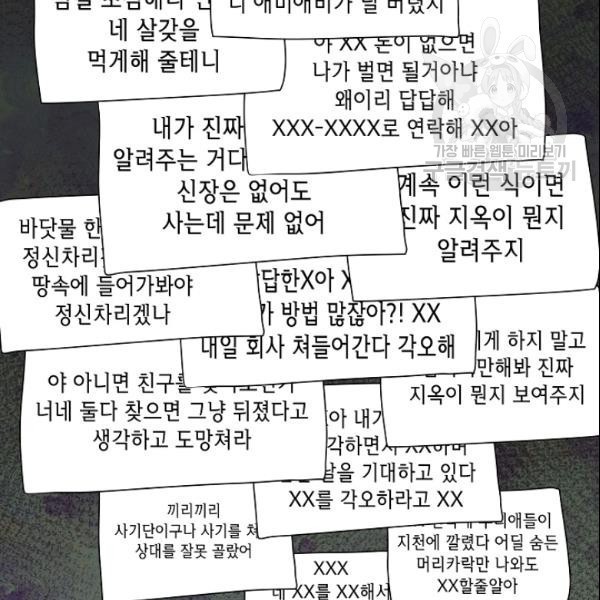 네 살갗을
먹게해 줄테니
니 애미애비가 널 버렸지
아 XX 돈이 없으면
나가 벌면 될거아냐
왜이리 답답해
XXX-XXXX로 연락해 XX아
내가 진짜
알려주는 거다
신장은 없어도
사는데 문제 없어
계속 이런 식이면
진짜 지옥이 뭔지
알려주지
가장 빠른 웹툰 미리보기
바닷물 한
정신차리
땅속에 들어가봐야
정신차리겠나
답한X아
방법 많잖아?! XX
내일 회사 쳐들어간다 각오해
하지 말고
진짜
지옥이 뭔지 보여주지
야 아니면 친구를
너네 둘다 찾으면 그냥 뒤졌다고
생각하고 도망쳐라
내가
각하면서 XX하며
날을 기대하고 있다
XX를 각오하라고 XX
끼리끼리
사기단이구나 사기를 쳐
상대를 잘못 골랐어
지천에 깔렸다 어딜 숨든
머리카락만 나와도
XX할줄알아
XXX
네 XX를 XX해서